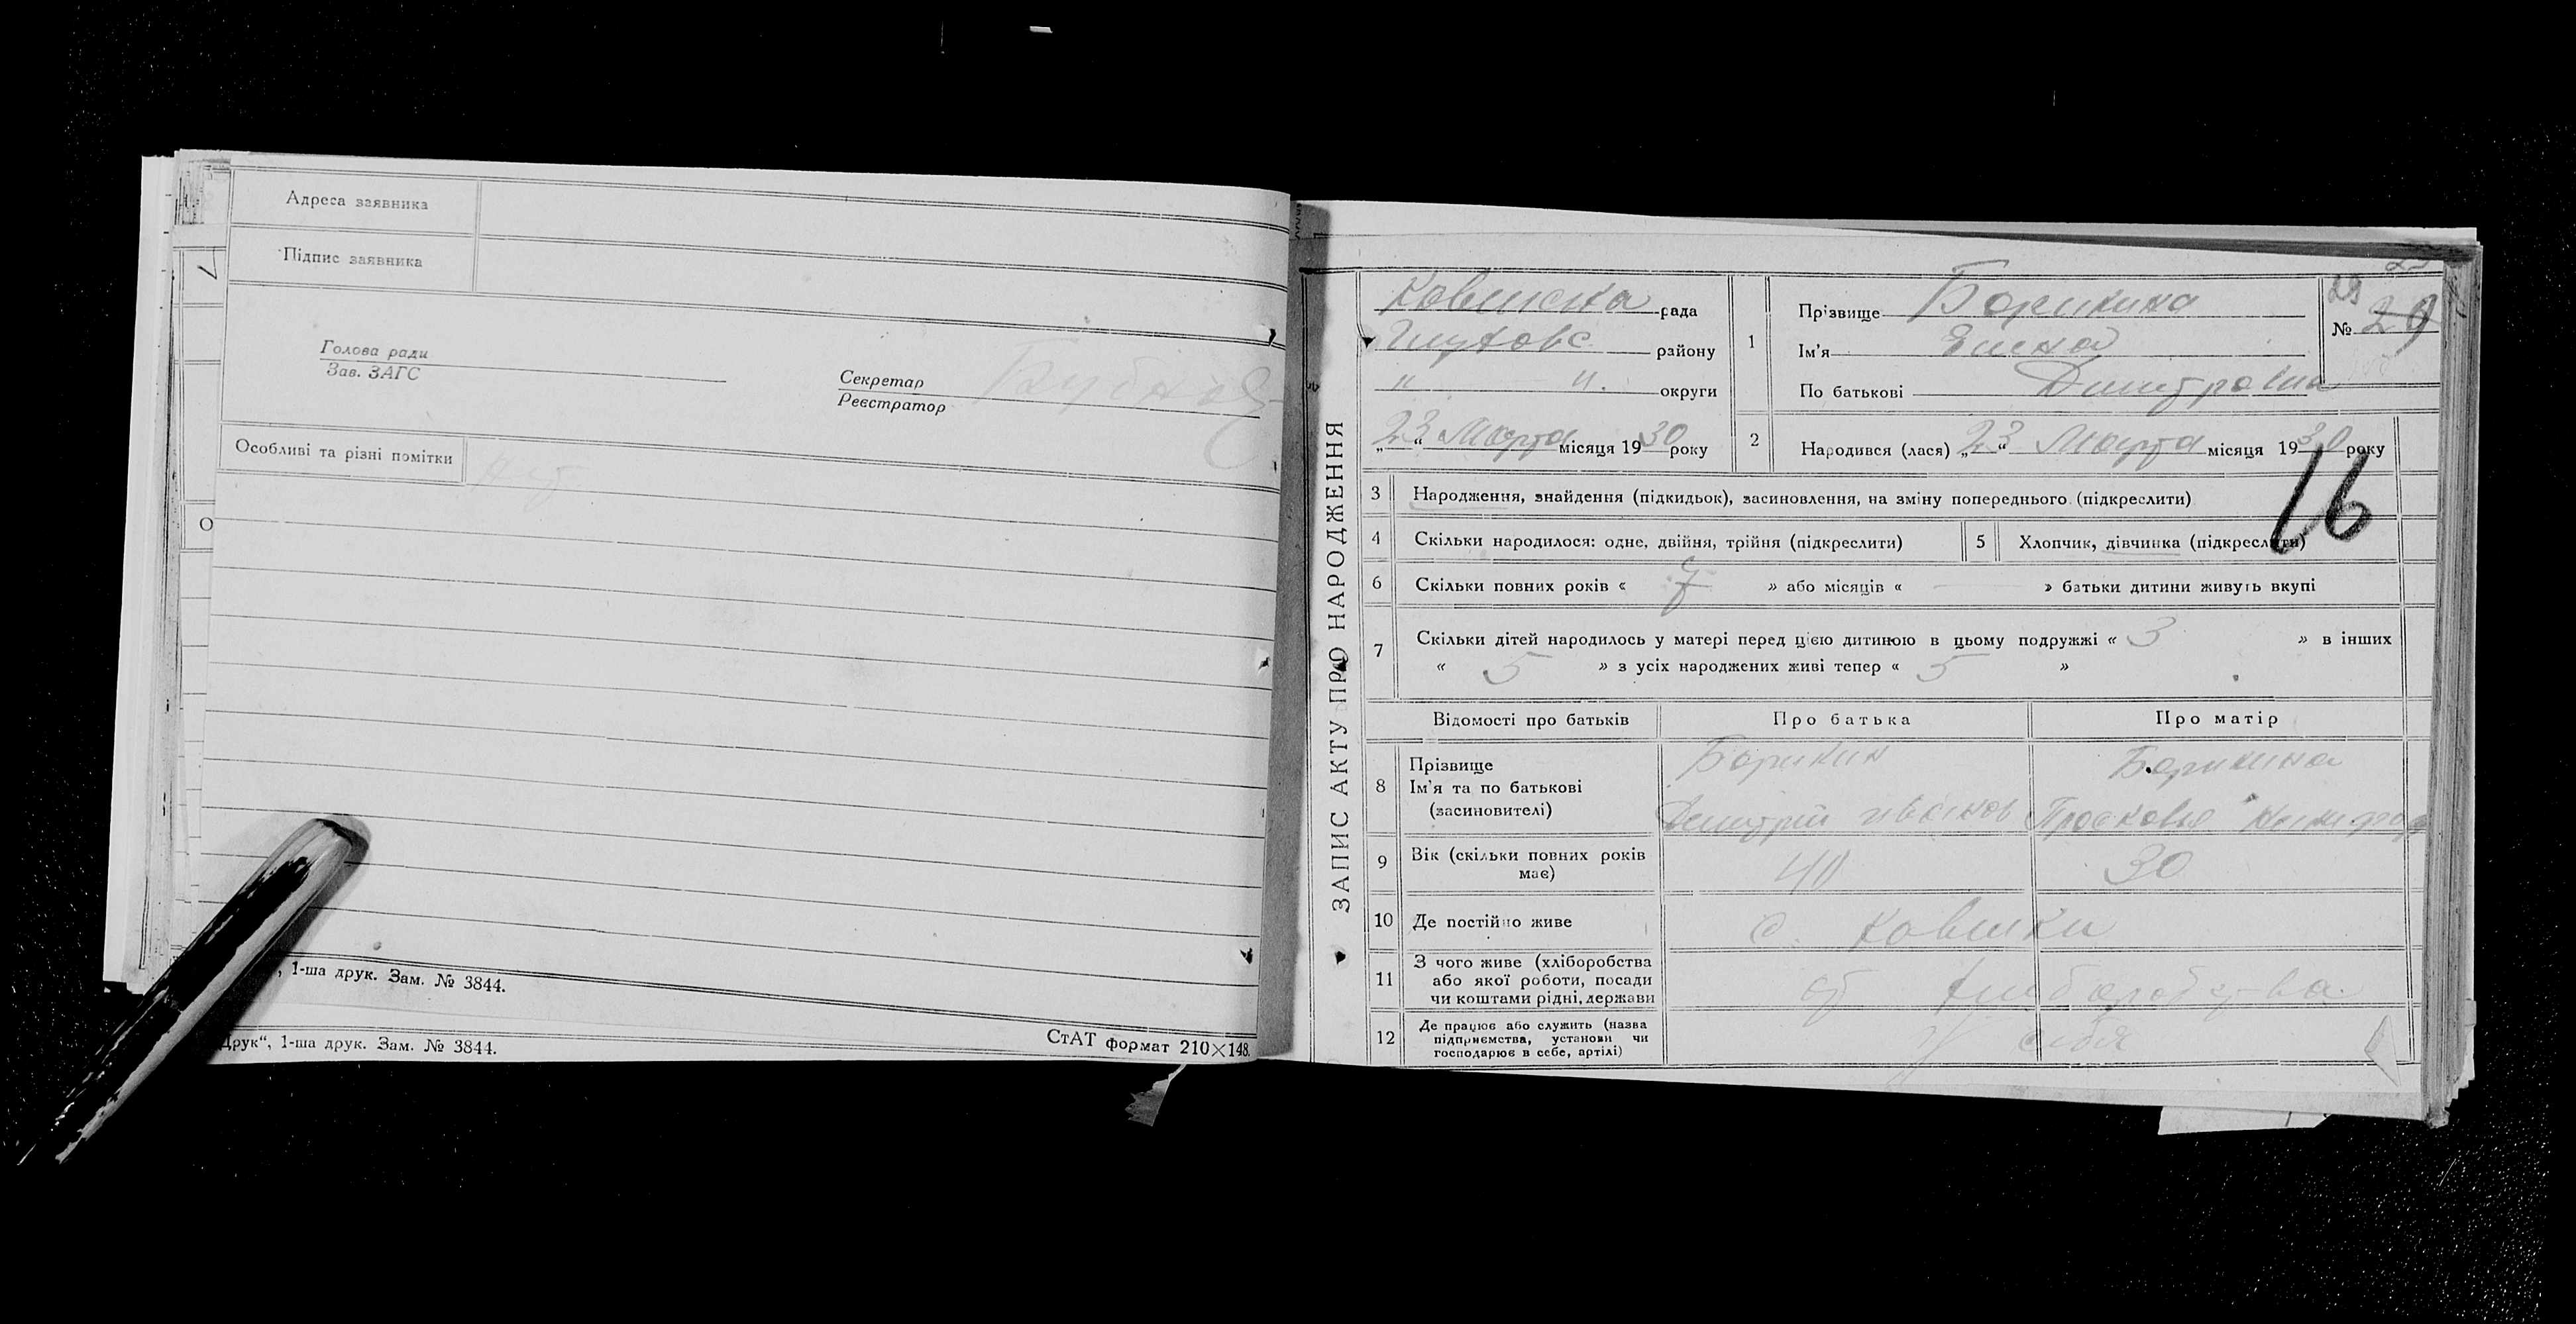 Адреса заявника
Підпис заявника
Голова ради
Зав. ЗАГС
Секретар
Реєстратор
Особливі та різні помітки
О
, 1-ша друк. Зам. № 3844.
Друк“, 1-ша друк. Зам. № 3844.
СтАТ формат 210×148.
ЗАПИС АКТУ ПРО НАРОДЖЕННЯ
рада
району
" " округи
„23“ Марта місяця 1930 року
1
Прізвище Борикина
Ім'я Елена
По батькові
29
№ 29
2
Народився (лася) „23“ Марта місяця 1930 року
16
3 Народження, знайдення (підкидьок), засиновлення, на зміну попереднього (підкреслити)
4 Скільки народилося: одне, двійня, трійня (підкреслити)
5 Хлопчик, дівчинка (підкреслити)
6 Скільки повних років « 7 » або місяців « — » батьки дитини живуть вкупі
7 Скільки дітей народилось у матері перед цією дитиною в цьому подружжі « 3 » в інших
« 5 » з усіх народжених живі тепер « 5 »
Відомості про батьків
Про батька
Про матір
8 Прізвище
Ім'я та по батькові
(засиновителі)
Борикин
Дмитрий
Борикина
9 Вік (скільки повних років має)
40
30
10 Де постійно живе
с.
11 З чого живе (хліборобства
або якої роботи, посади
чи коштами рідні, держави
от хлиборобства
12 Де працює або служить (назва
підприємства, установи чи
господарює в себе, артілі)
у себя